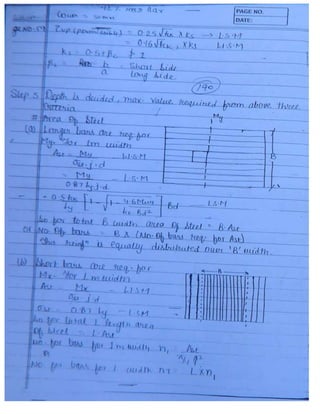 PAGE NO.
DATE:
= 0.25√fck × Ks → L.S.M
= 0.16√fck × Ks W.S.M
Ks = 0.5+βc ≯ 1
βc = b = Short Side
a Long Side
190
Step 5 Depth is decided, max value required from above three
criteria
# Area of Steel
(a) Longer bars are req. for
My for 1m width
My
B
Ast = My - W.S.M
σst.j.d
= My - L.S.M
0.87 fy j.d
= 0.5 fck [1 - √1 - 4.6 Mu] Bd - L.S.M
fy fck Bd²
So for total B width area of Steel = B.Ast
or No. of bars = B × (No. of bars req. for Ast)
This reinf is equally distributed over 'B' width.
(b) Short bars are req. for
Mx for 1m width
B
Ast = Mx - W.S.M
σst j.d
σst = 0.87 fy - L.S.M
So for total L length area
Of Steel = L.Ast
no. for bars for 1m width n₁ = Ast
π/4 φ²
No. for bars for L width n = L×n₁